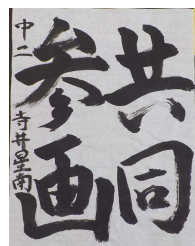 共同
参画
中二 寺井星南